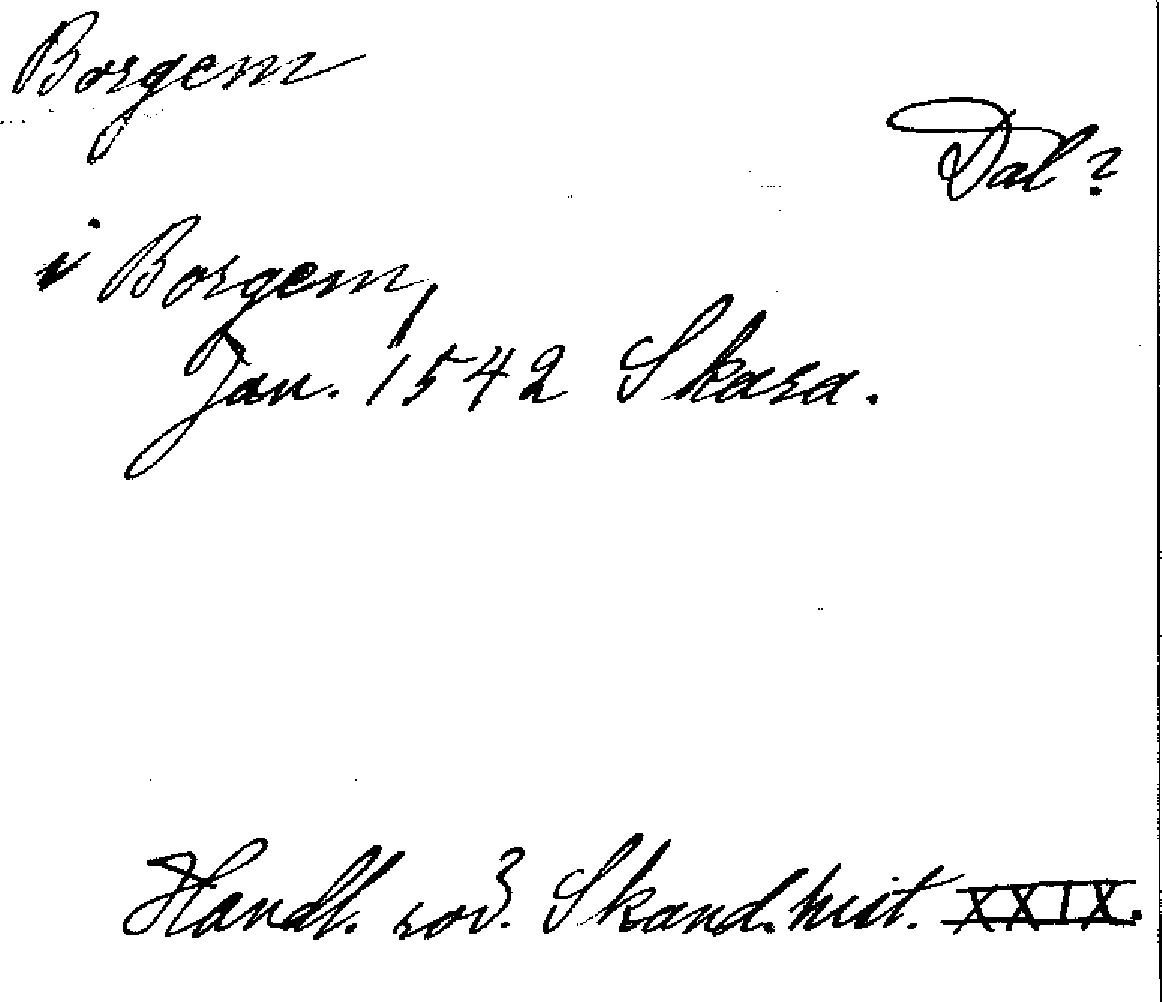 Borgem
Dal?
i Borgem,
Jan. 1542 Skara.
Handl. rör. Skand. hist. XXIX.